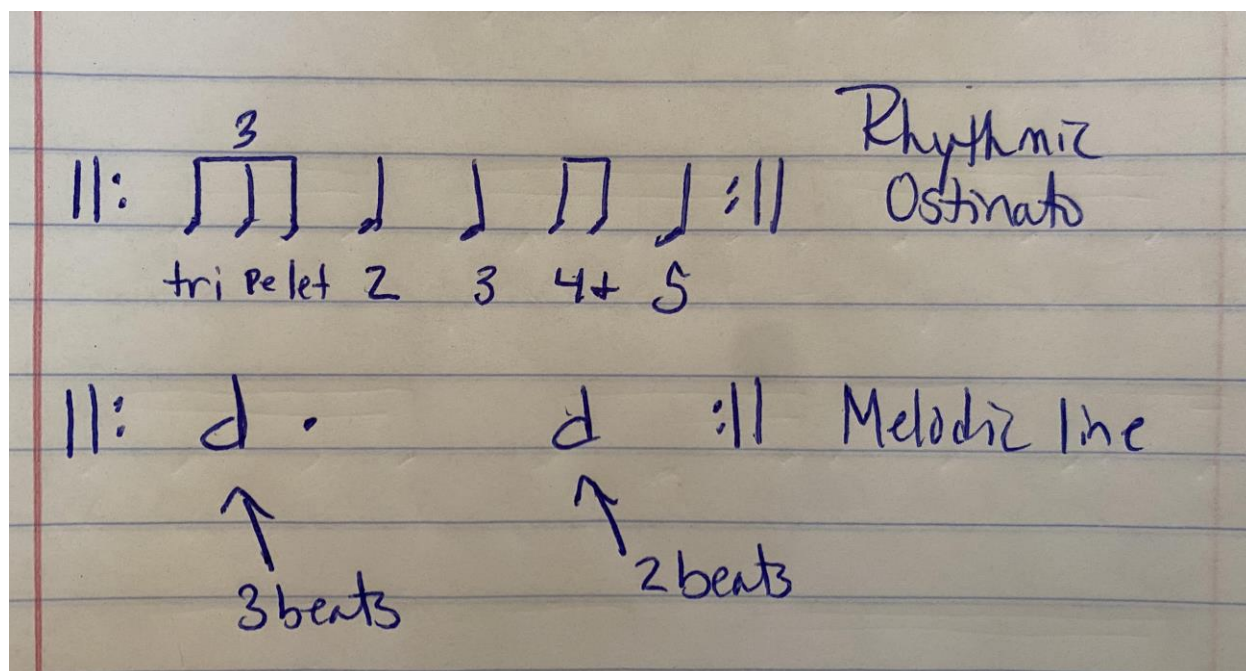 3
Rhythmic
Ostinato
tri pe let 2 3 4+ 5
Melodic line
3 beats
2 beats